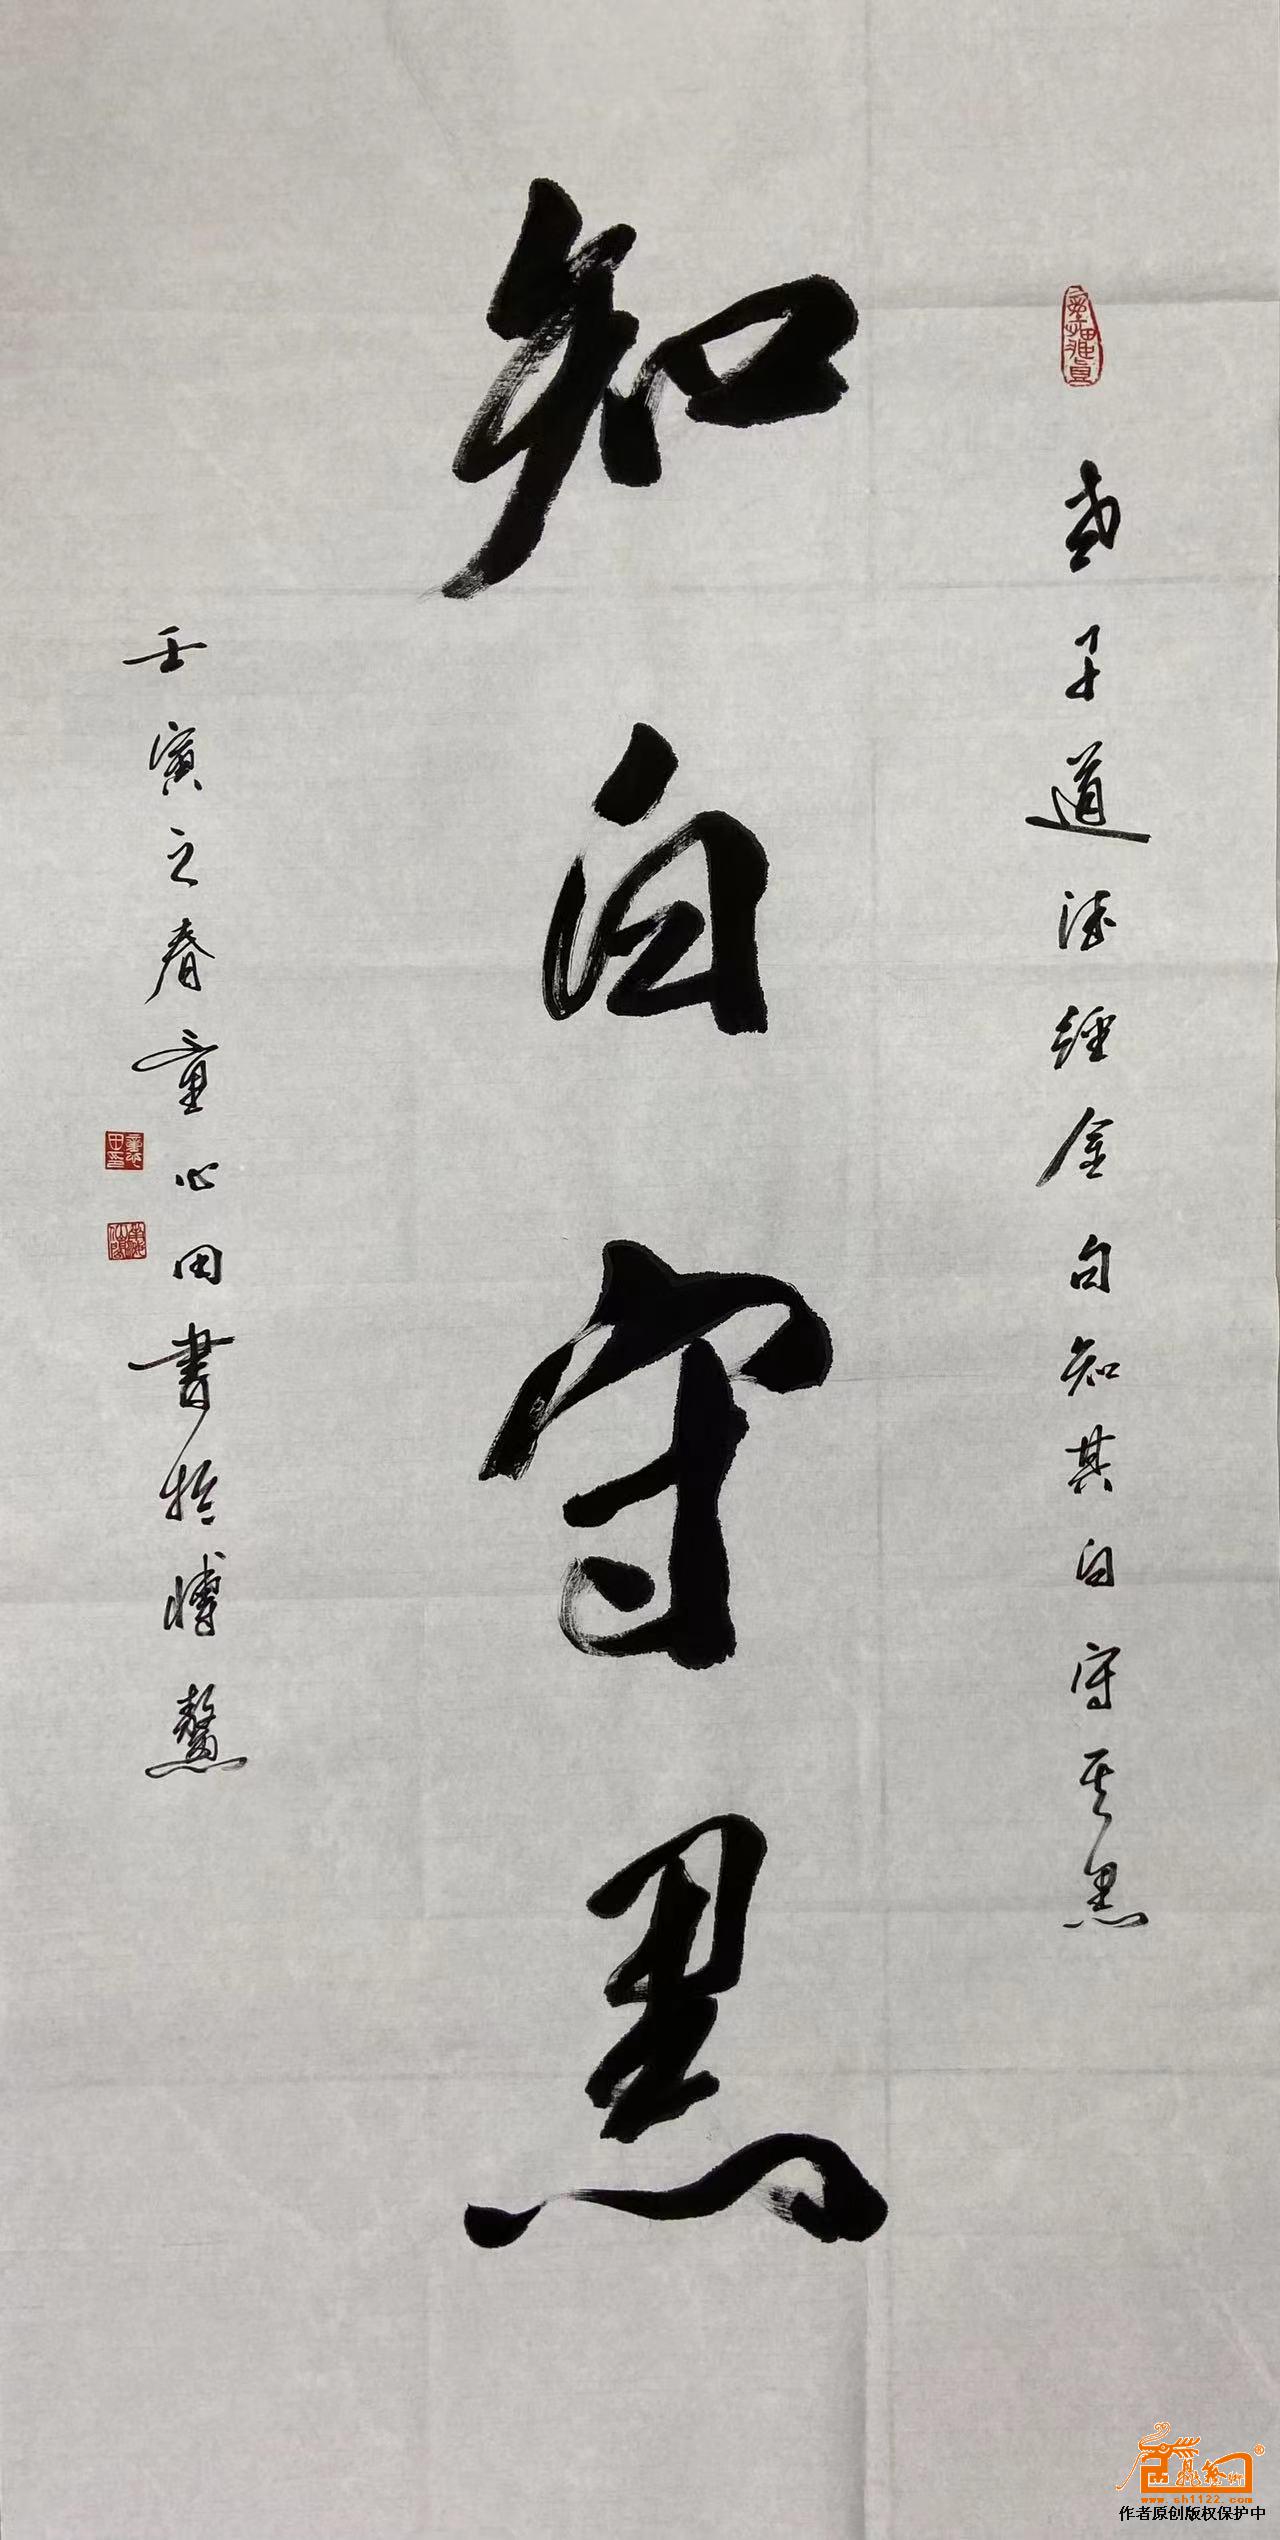 老子道德經金句知其白守其黑
知白守黑
壬寅之春童心田書於博鰲
www.sh1122.com
作者原创版权保护中